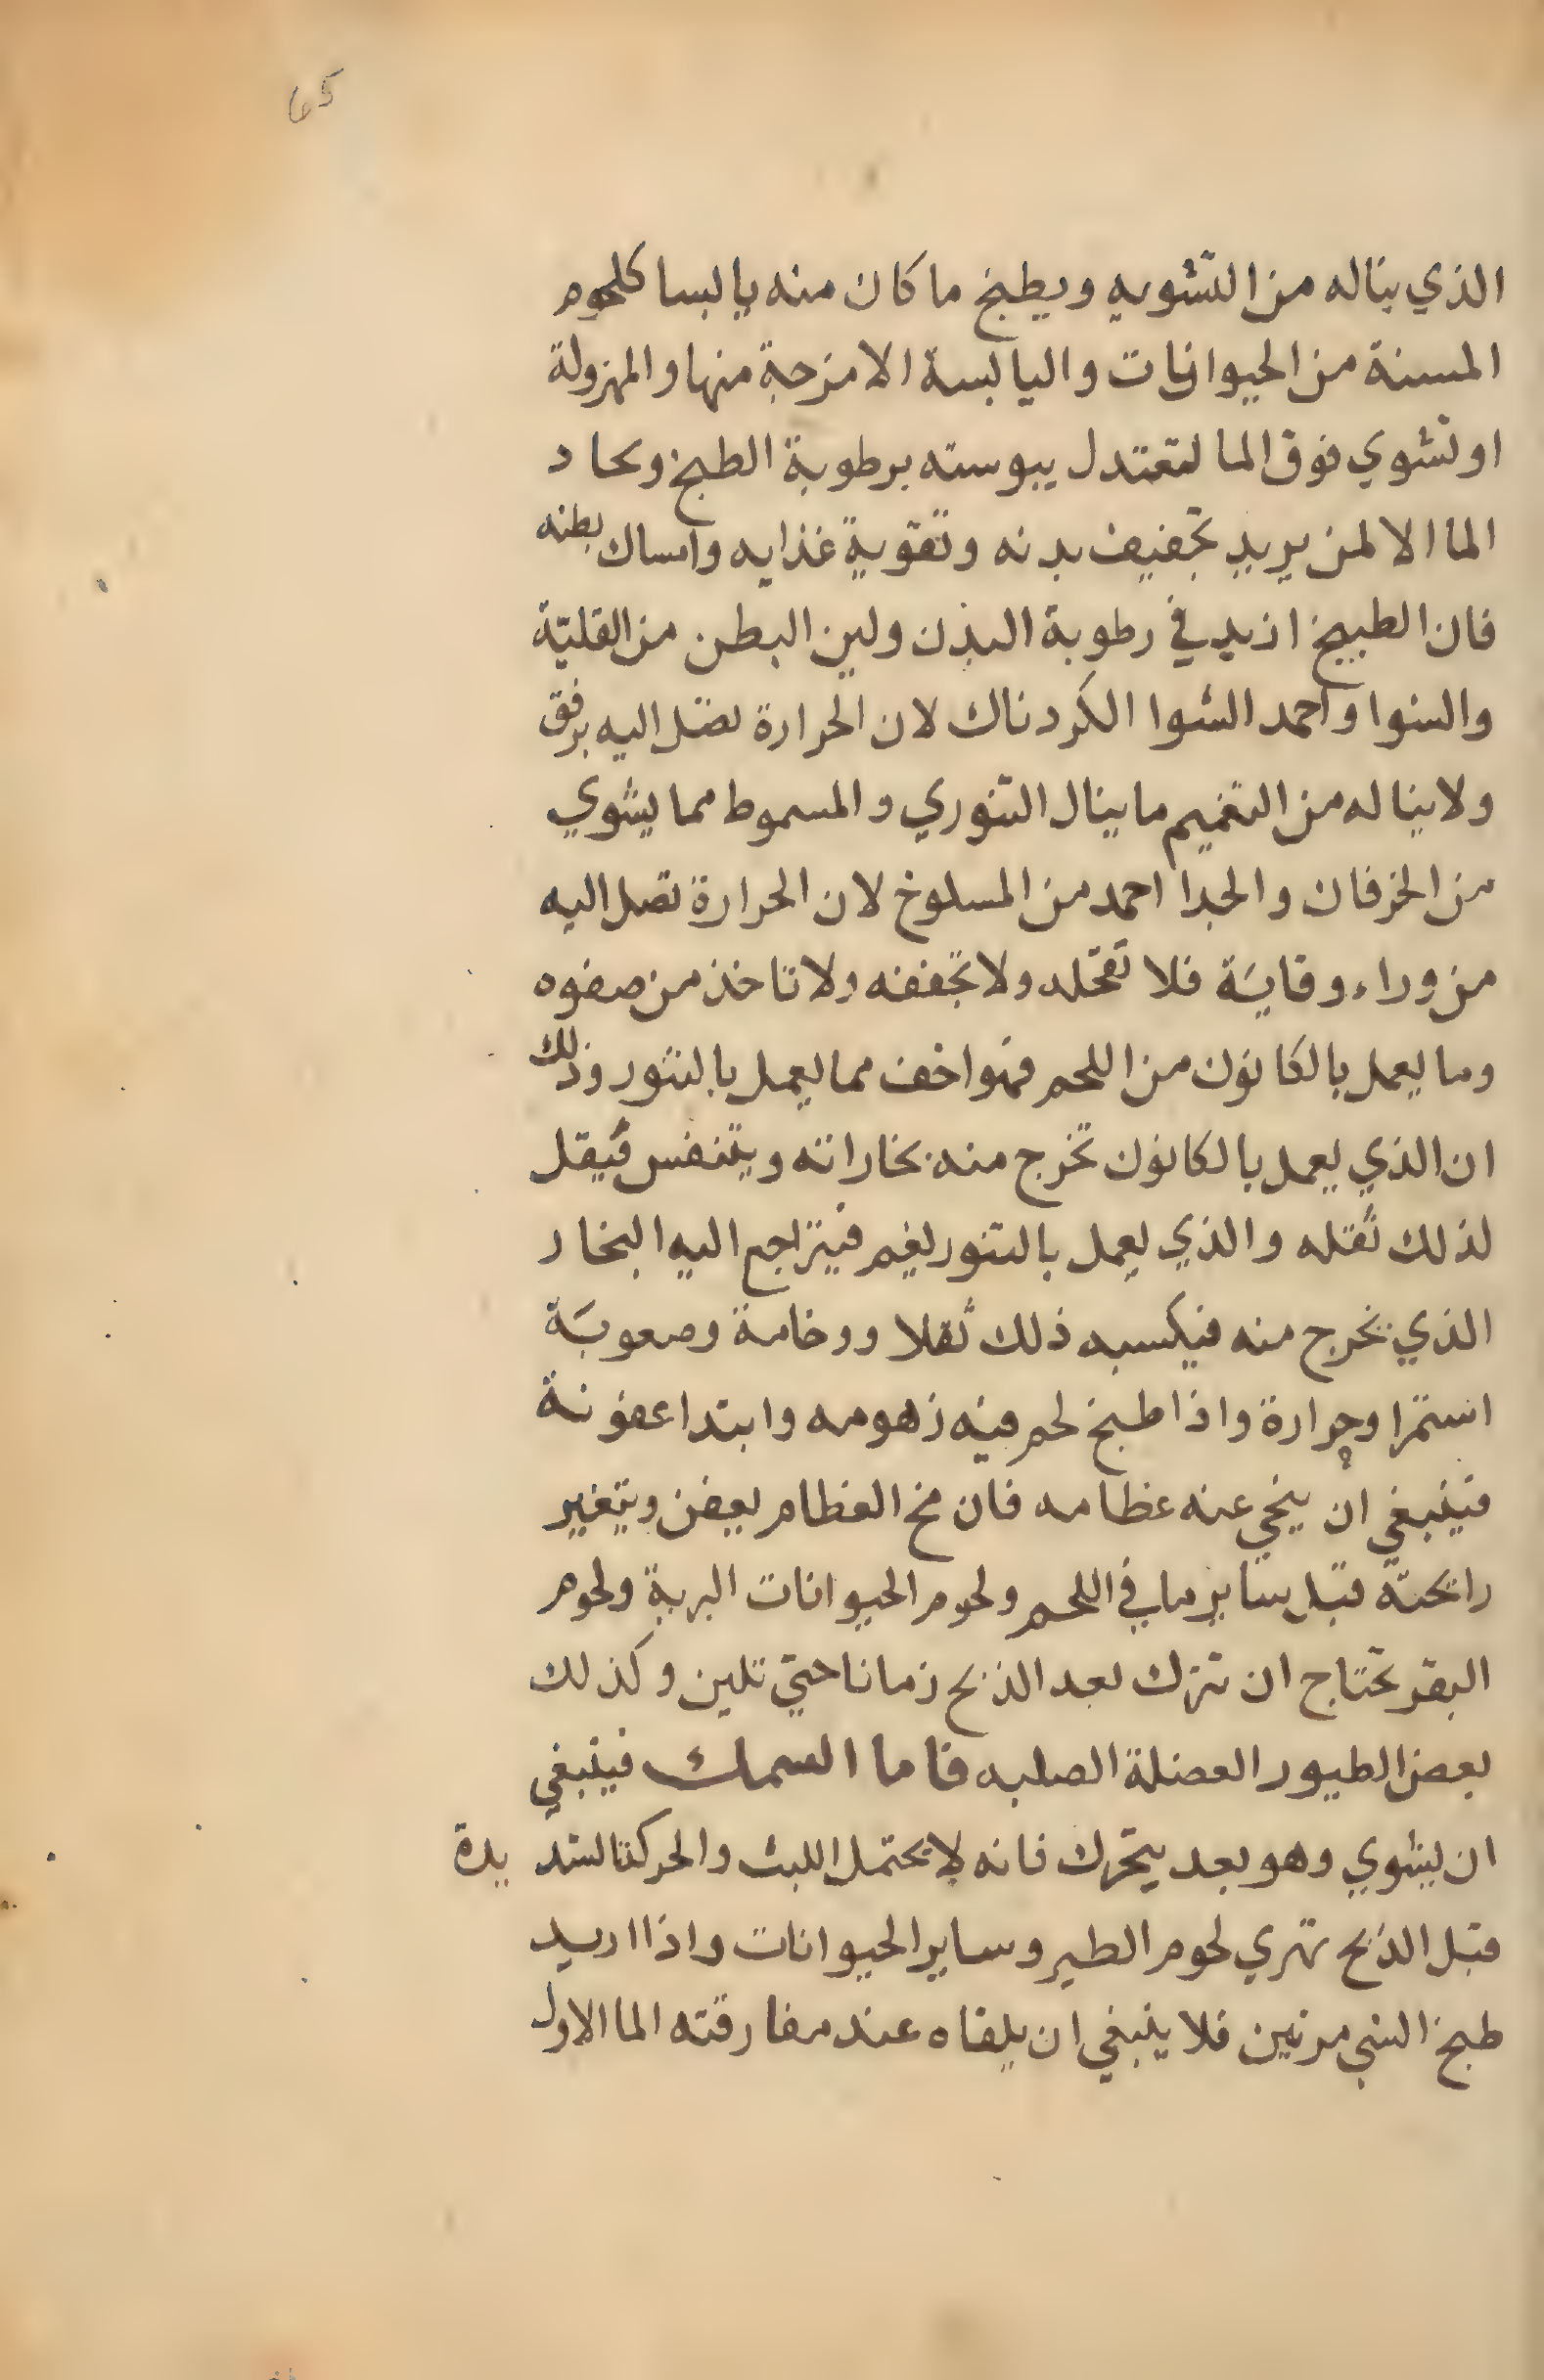 65
الذي يناله من التشويه ويطبخ ما كان منه يابسا كلحوم
المسنة من الحيوانات واليابسة الامزجة منها والمهزولة
او تشوي فوق الما لتعتدل يبوسته برطوبة الطبخ وبخار
الما الا لمن يريد تجفيف بدنه وتقوية غذايه وامساك بطنه
فان الطبيخ ازيد في رطوبة البدن ولين البطن من القليّة
والشوا واحمد الشوا الكردناك لان الحرارة تصل اليه برفق
ولا يناله من التغميم ما ينال التنوري والمسموط مما يشوي
من الخرفان والجدا احمد من المسلوخ لان الحرارة تصل اليه
من وراء وقاية فلا تقحله ولا تجففه ولا تاخذ من صفوه
وما يعمل بالكانون من اللحم فهو اخف مما يعمل بالتنور وذلك
ان الذي يعمل بالكانون تخرج منه بخاراته ويتنفس فيقل
لذلك ثقله والذي يعمل بالتنور يغم فيتراجع اليه البخار
الذي يخرج منه فيكسبه ذلك ثقلا ووخامة وصعوبة
استمرا وحرارة واذا طبخ لحم فيه زهومه وابتدا عفونة
فينبغي ان ينحي عنه عظامه فان مخ العظام يعفن ويتغير
رايحتة قبل ساير ما في اللحم ولحوم الحيوانات البرية ولحوم
البقر تحتاج ان تترك بعد الذبح زمانا حتي تلين وكذلك
بعض الطيور العضلة الصلبه فاما السمك فينبغي
ان يشوي وهو بعد يتحرك فانه لا يحتمل اللبث والحركة الشديدة
قبل الذبح تهري لحوم الطير وساير الحيوانات واذا اريد
طبخ الشي مرتين فلا ينبغي ان يلقاه عند مفارقته الما الاول